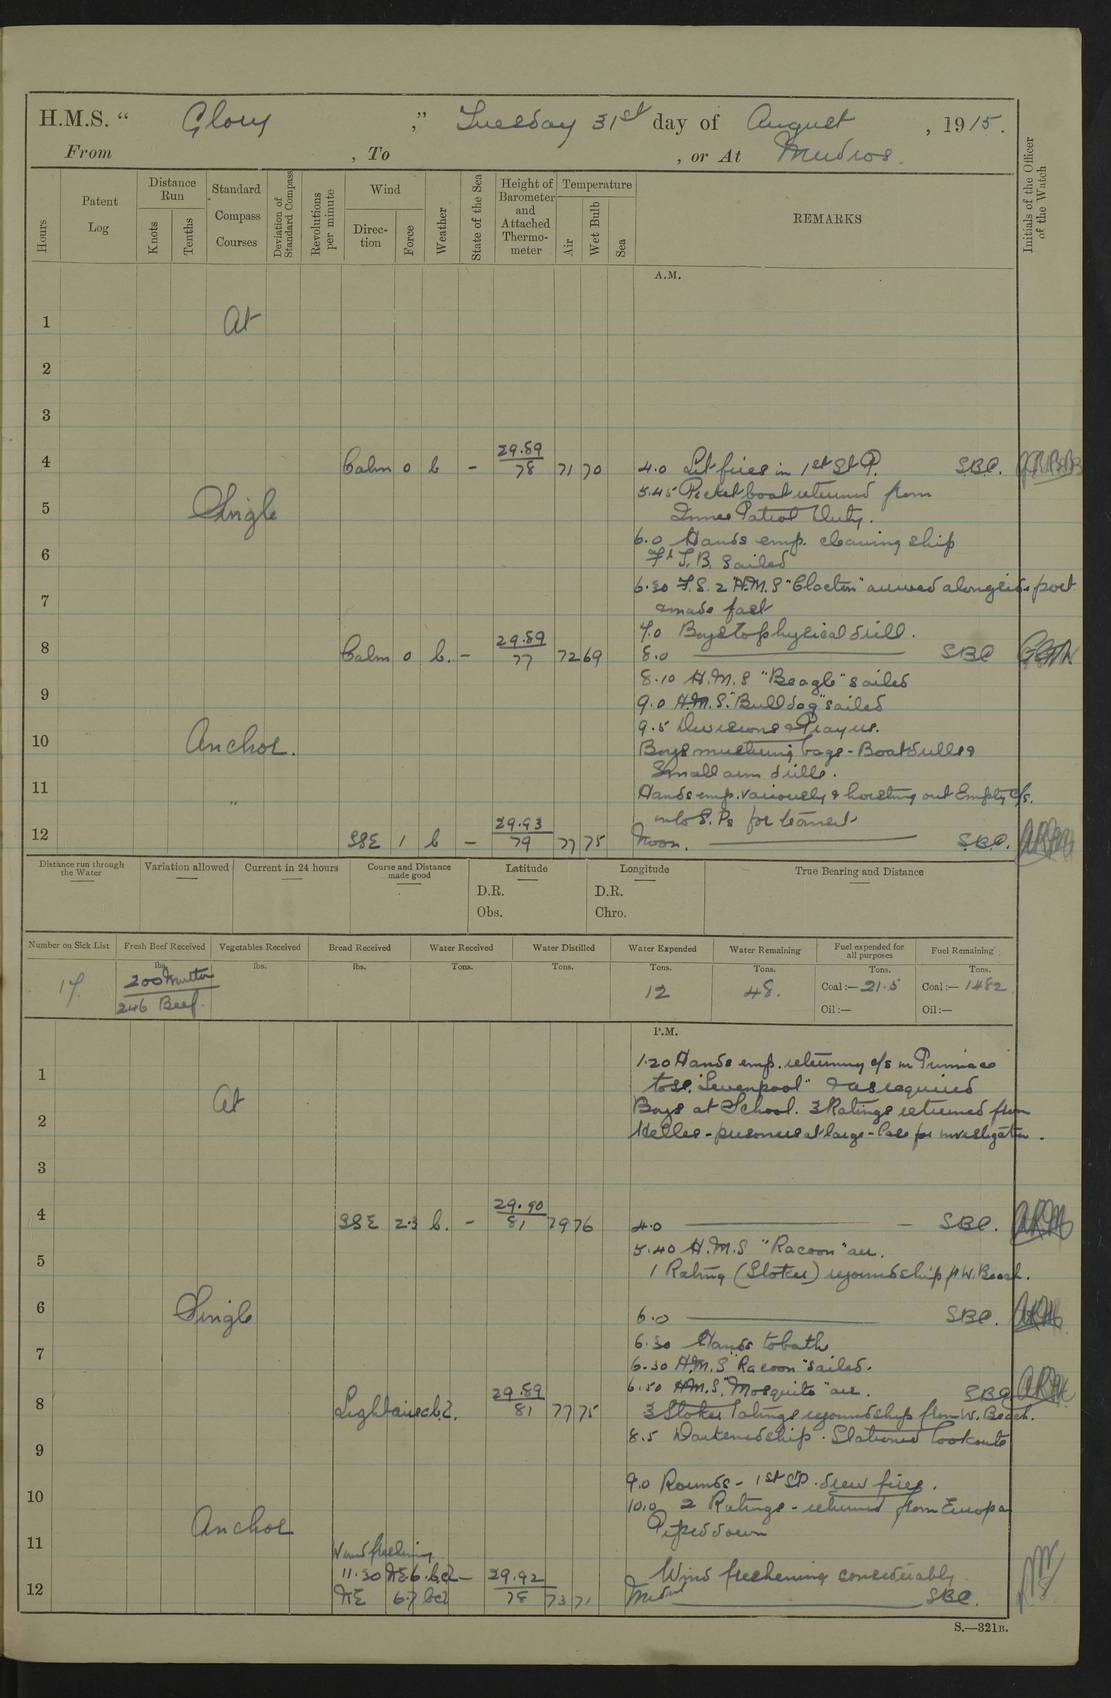 H.M.S. " Glory ," Tuesday 31st day of August , 1915.
From , To , or At Mudros.
Hours
Patent Log
Distance Run
Knots
Tenths
Standard Compass Courses
Deviation of Standard Compass
Revolutions per minute
Wind
Direction
Force
Weather
State of the Sea
Height of Barometer and Attached Thermometer
Temperature
Air
Wet Bulb
Sea
REMARKS
Initials of the Officer of the Watch
A.M.
1 At
2
3
4 Calm 0 b - 29.89 78 71 70 4.0 Lit fires in 1st St P. S.B.C.
5 Single 5.45 Picket boat returned from
Inner Patrol Duty.
6.0 Hands emp. cleaning ship
6 T.B. sailed
6.30 F.S. 2 H.M.S "Clacton" arrived alongside port
7 & made fast
7.0 Boys to physical drill.
8 Calm 0 b. - 29.89 77 72 69 8.0 SBC
8.10 H.M.S "Beagle" sailed
9 9.0 H.M.S. "Bulldog" sailed
9.5 Divisions & Prayers.
10 Anchor. Boys mustering bags - Boat drill &
Small arm drills.
11 " Hands emp. variously & hoisting out Empty c/s.
into S. Ps for
12 SSE 1 b - 29.93 79 77 75 Noon. S.B.C.
Distance run through the Water
Variation allowed
Current in 24 hours
Course and Distance made good
Latitude
D.R.
Obs.
Longitude
D.R.
Chro.
True Bearing and Distance
Number on Sick List
17
Fresh Beef Received
lbs.
200 Mutton
246 Beef.
Vegetables Received
lbs.
Bread Received
lbs.
Water Received
Tons.
Water Distilled
Tons.
Water Expended
Tons.
12
Water Remaining
Tons.
48.
Fuel expended for all purposes
Tons.
Coal:— 21.5
Oil:—
Fuel Remaining
Tons.
Coal:— 1482
Oil:—
P.M.
1.20 Hands emp. returning c/s in Pinnace
1 to SS. "Levenpool" & as required
At Boys at School. 3 Ratings returned from
2 Helles - prisoners at large - Case for investigation.
3
4 SSE 2.3 b. - 29.90 81 79 76 4.0 SBC.
5.40 H.M.S "Racoon" arr.
5 1 Rating (Stoker) rejoined ship fr W. Beach.
6 Single 6.0 SBC.
6.30 Hands to bathe
7 6.30 H.M.S "Racoon" sailed.
6.50 H.M.S. "Mosquito" arr. SBC
8 Light airs b.c. 29.89 81 77 75 3 Stoker ratings rejoined ship from W. Beach.
8.5 Darkened ship. Stationed lookouts
9
9.0 Rounds - 1st SP. drew fires.
10 10.0 2 Ratings - returned from Europa
Anchor Piped down
11 Wind freshening
11.30 NE 6 bc - 29.92 78 73 71 Wind freshening considerably.
12 NE 6.7 bc Midnt SBC.
S.—321B.